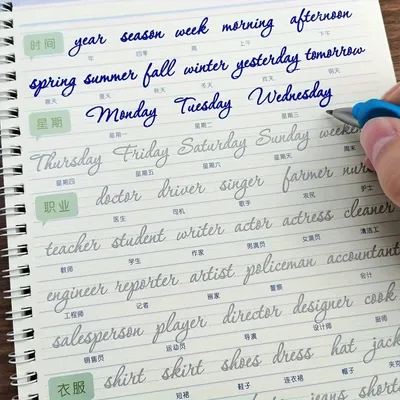 时间 year season week morning afternoon
年 四季 周 上午 下午
spring summer fall winter yesterday tomorrow
春天 夏天 秋天 冬天 昨天 明天
星期 Monday Tuesday Wednesday
星期一 星期二 星期三
Thursday Friday Saturday Sunday weeken
星期四 星期五 星期六 星期天 周末
职业 doctor driver singer farmer nur
医生 司机 歌手 农民 护士
teacher student writer actor actress cleaner
教师 学生 作家 男演员 女演员 清洁工
engineer reporter artist policeman accountant
工程师 记者 画家 警察 会计
salesperson player director designer cook
销售员 运动员 导演 设计师 厨师
衣服 shirt skirt shoes dress hat jack
短裙 鞋子 连衣裙 帽子 夹克
jeans short